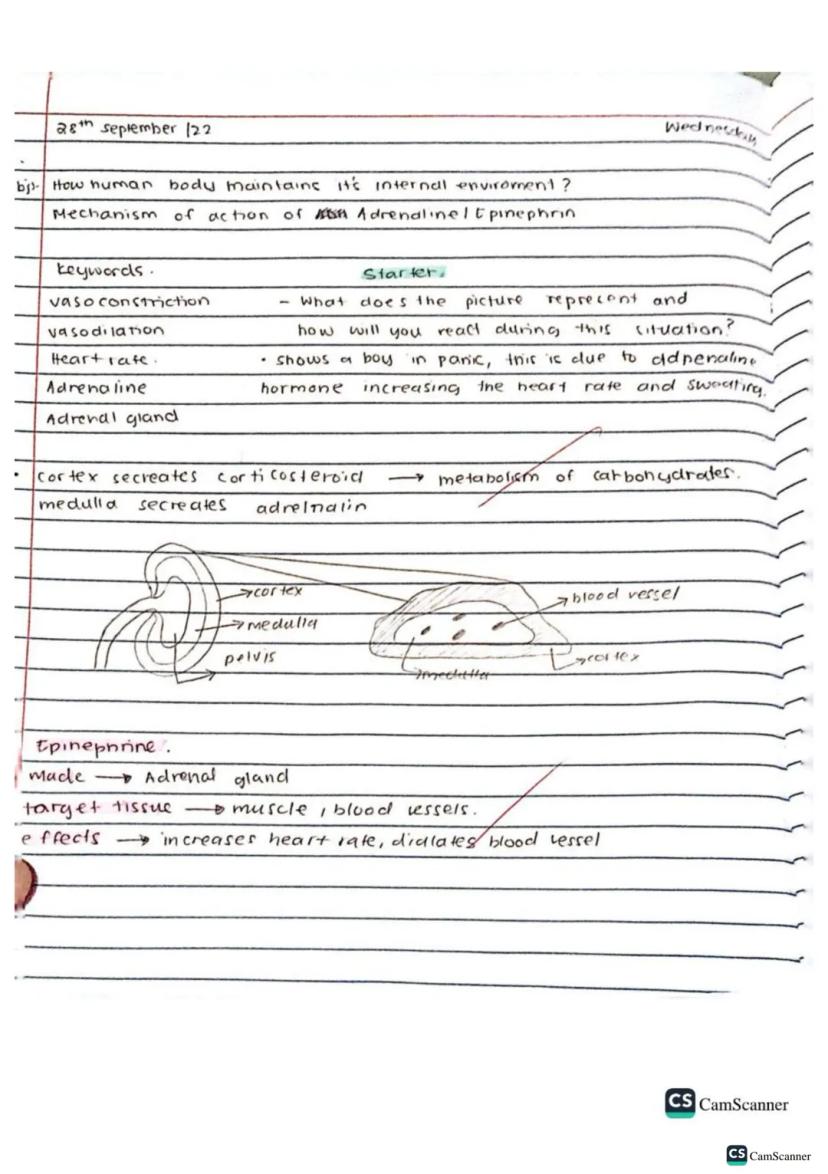 28th september /22
Wednesday
bj)- How human body maintains it's internal enviroment?
Mechanism of action of Adrenaline/Epinephrin
Keywords.
Starter.
vasoconstriction - What does the picture reprecent and
vasodilation how will you react during this cituation?
Heart rate. • shows a boy in panic, this is due to adpenaline
Adrenaline hormone increasing the heart rate and sweating.
Adrenal gland
• cortex secreates corticosteroid → metabolism of carbohydrates.
medulla secreates adrelnalin
cortex
blood vessel
medulla
pelvis
medulla
cortex
Epinephrine.
Made → Adrenal gland
target tissue → muscle, blood vessels.
effects → increases heart rate, dialates blood vessel
CS CamScanner
CS CamScanner